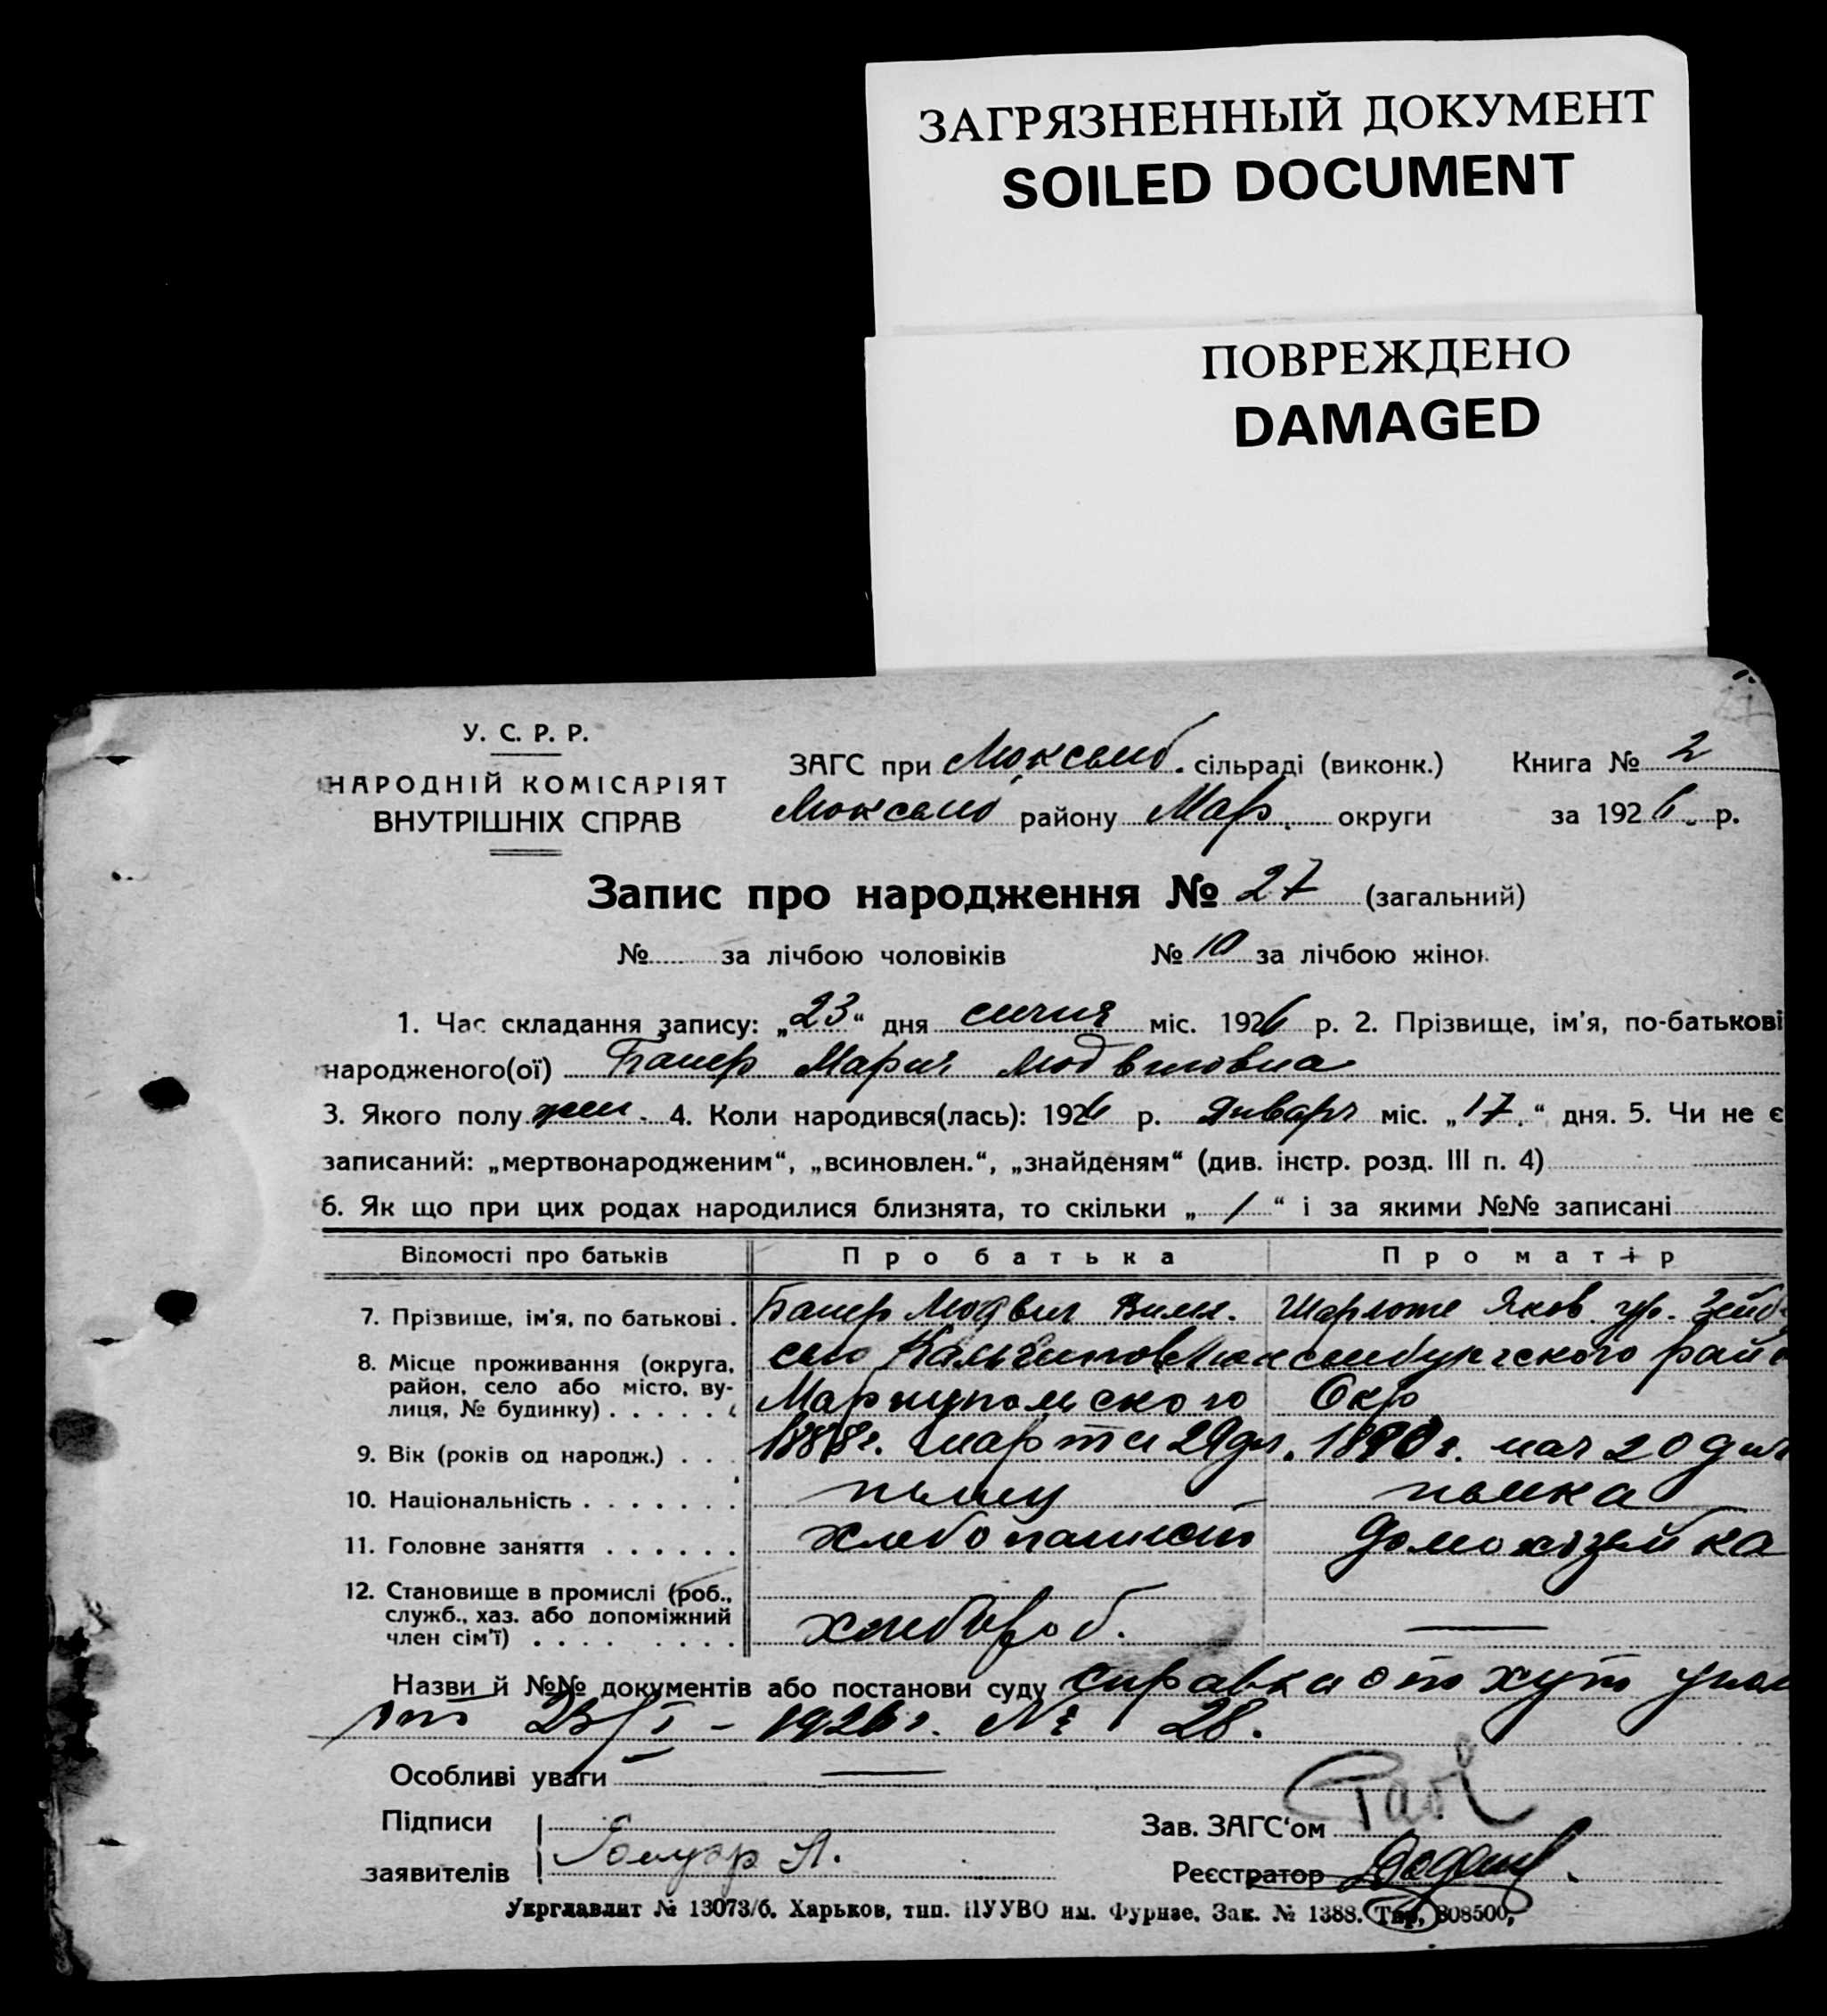 ЗАГРЯЗНЕННЫЙ ДОКУМЕНТ
SOILED DOCUMENT
ПОВРЕЖДЕНО
DAMAGED
У. С. Р. Р.
НАРОДНІЙ КОМІСАРІЯТ
ВНУТРІШНІХ СПРАВ
ЗАГС при Люксемб. сільраді (виконк.) Книга № 2
Люксемб району Мар. округи за 1926 р.
Запис про народження № 27 (загальний)
№ за лічбою чоловіків № 10 за лічбою жінок
1. Час складання запису: „23“ дня сичня міс. 1926 р. 2. Прізвище, ім'я, по-батькові
народженого(ої) Бауер Мария Людвиговна
3. Якого полу жен. 4. Коли народився(лась): 1926 р. Января міс. „17“ дня. 5. Чи не є
записаний: „мертвонародженим“, „всиновлен.“, „знайденям“ (див. інстр. розд. III п. 4)
6. Як що при цих родах народилися близнята, то скільки „/“ і за якими №№ записані
Відомості про батьків Про батька Про матір
7. Прізвище, ім'я, по батькові . Бауер Людвиг Вилг. Шарлоте Яков. ур.
8. Місце проживання (округа, село Люксембургского рай
район, село або місто, ву- Мариупольского Окр
лиця, № будинку) . . . . .
9. Вік (років од народж.) . . . 1888г. марта 29 дн. 1890г. мая 20 дня
10. Національність . . . . . . . немец немка
11. Головне заняття . . . . . . хлебопашест домохозяйка
12. Становище в промислі (роб.,
служб., хаз. або допоміжний хлебороб. —
член сім'ї) . . . . . . . .
Назви й №№ документів або постанови суду справка от хут упол
от 23/I – 1926г. № 28.
Особливі уваги —
Підписи
заявителів
Зав. ЗАГС'ом
Реєстратор
Укрглавлит № 13073/б. Харьков, тип. ПУУВО им. Фрунзе. Зак. № 1388. Тир. 808500,